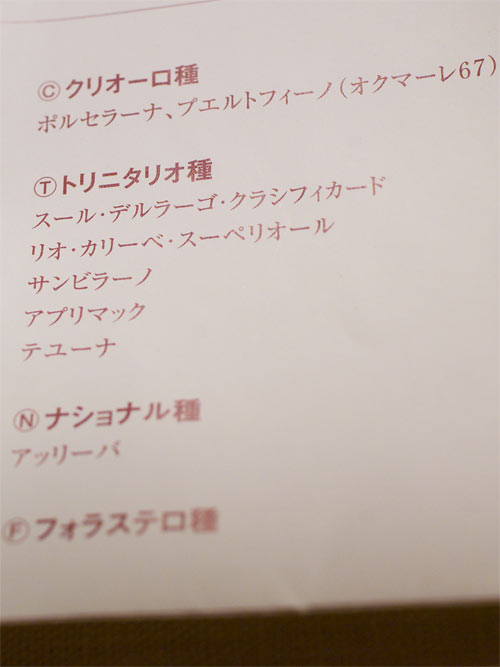 Ⓒクリオーロ種
ポルセラーナ、プエルトフィーノ(オクマーレ67)
Ⓣトリニタリオ種
スール・デルラーゴ・クラシフィカード
リオ・カリーベ・スーペリオール
サンビラーノ
アプリマック
テユーナ
Ⓝナショナル種
アッリーバ
Ⓕフォラステロ種